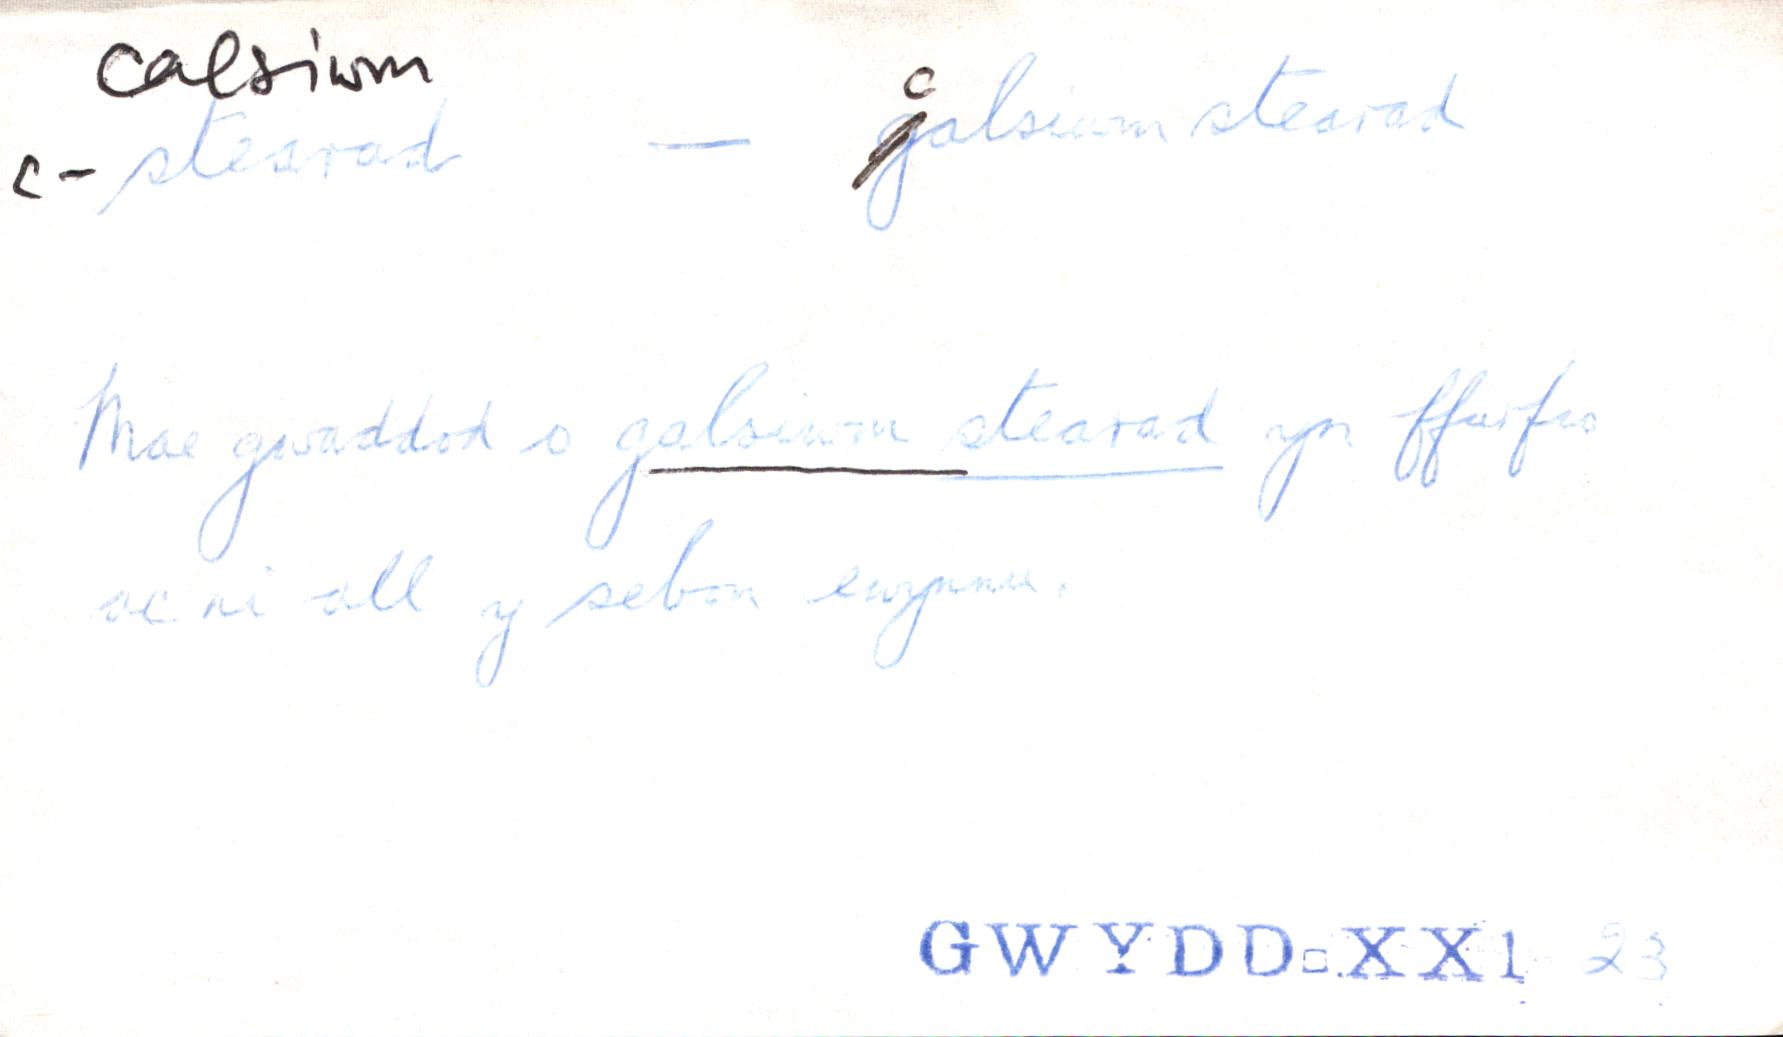 calsiwm
c- stearad — c galsiwm stearad
Mae gwaddod o galsiwm stearad yn ffurfio
ac ni all y sebon ewynnu.
GWYDD. XX1 23